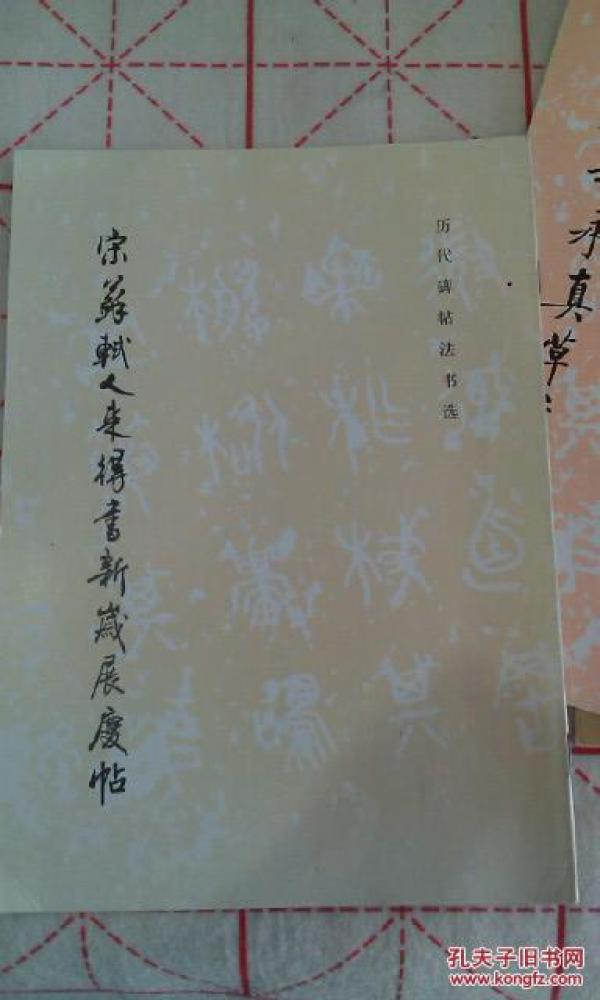 历代碑帖法书选
宋蘇軾人来得書新歲展慶帖
真草
孔夫子旧书网
www.kongfz.com